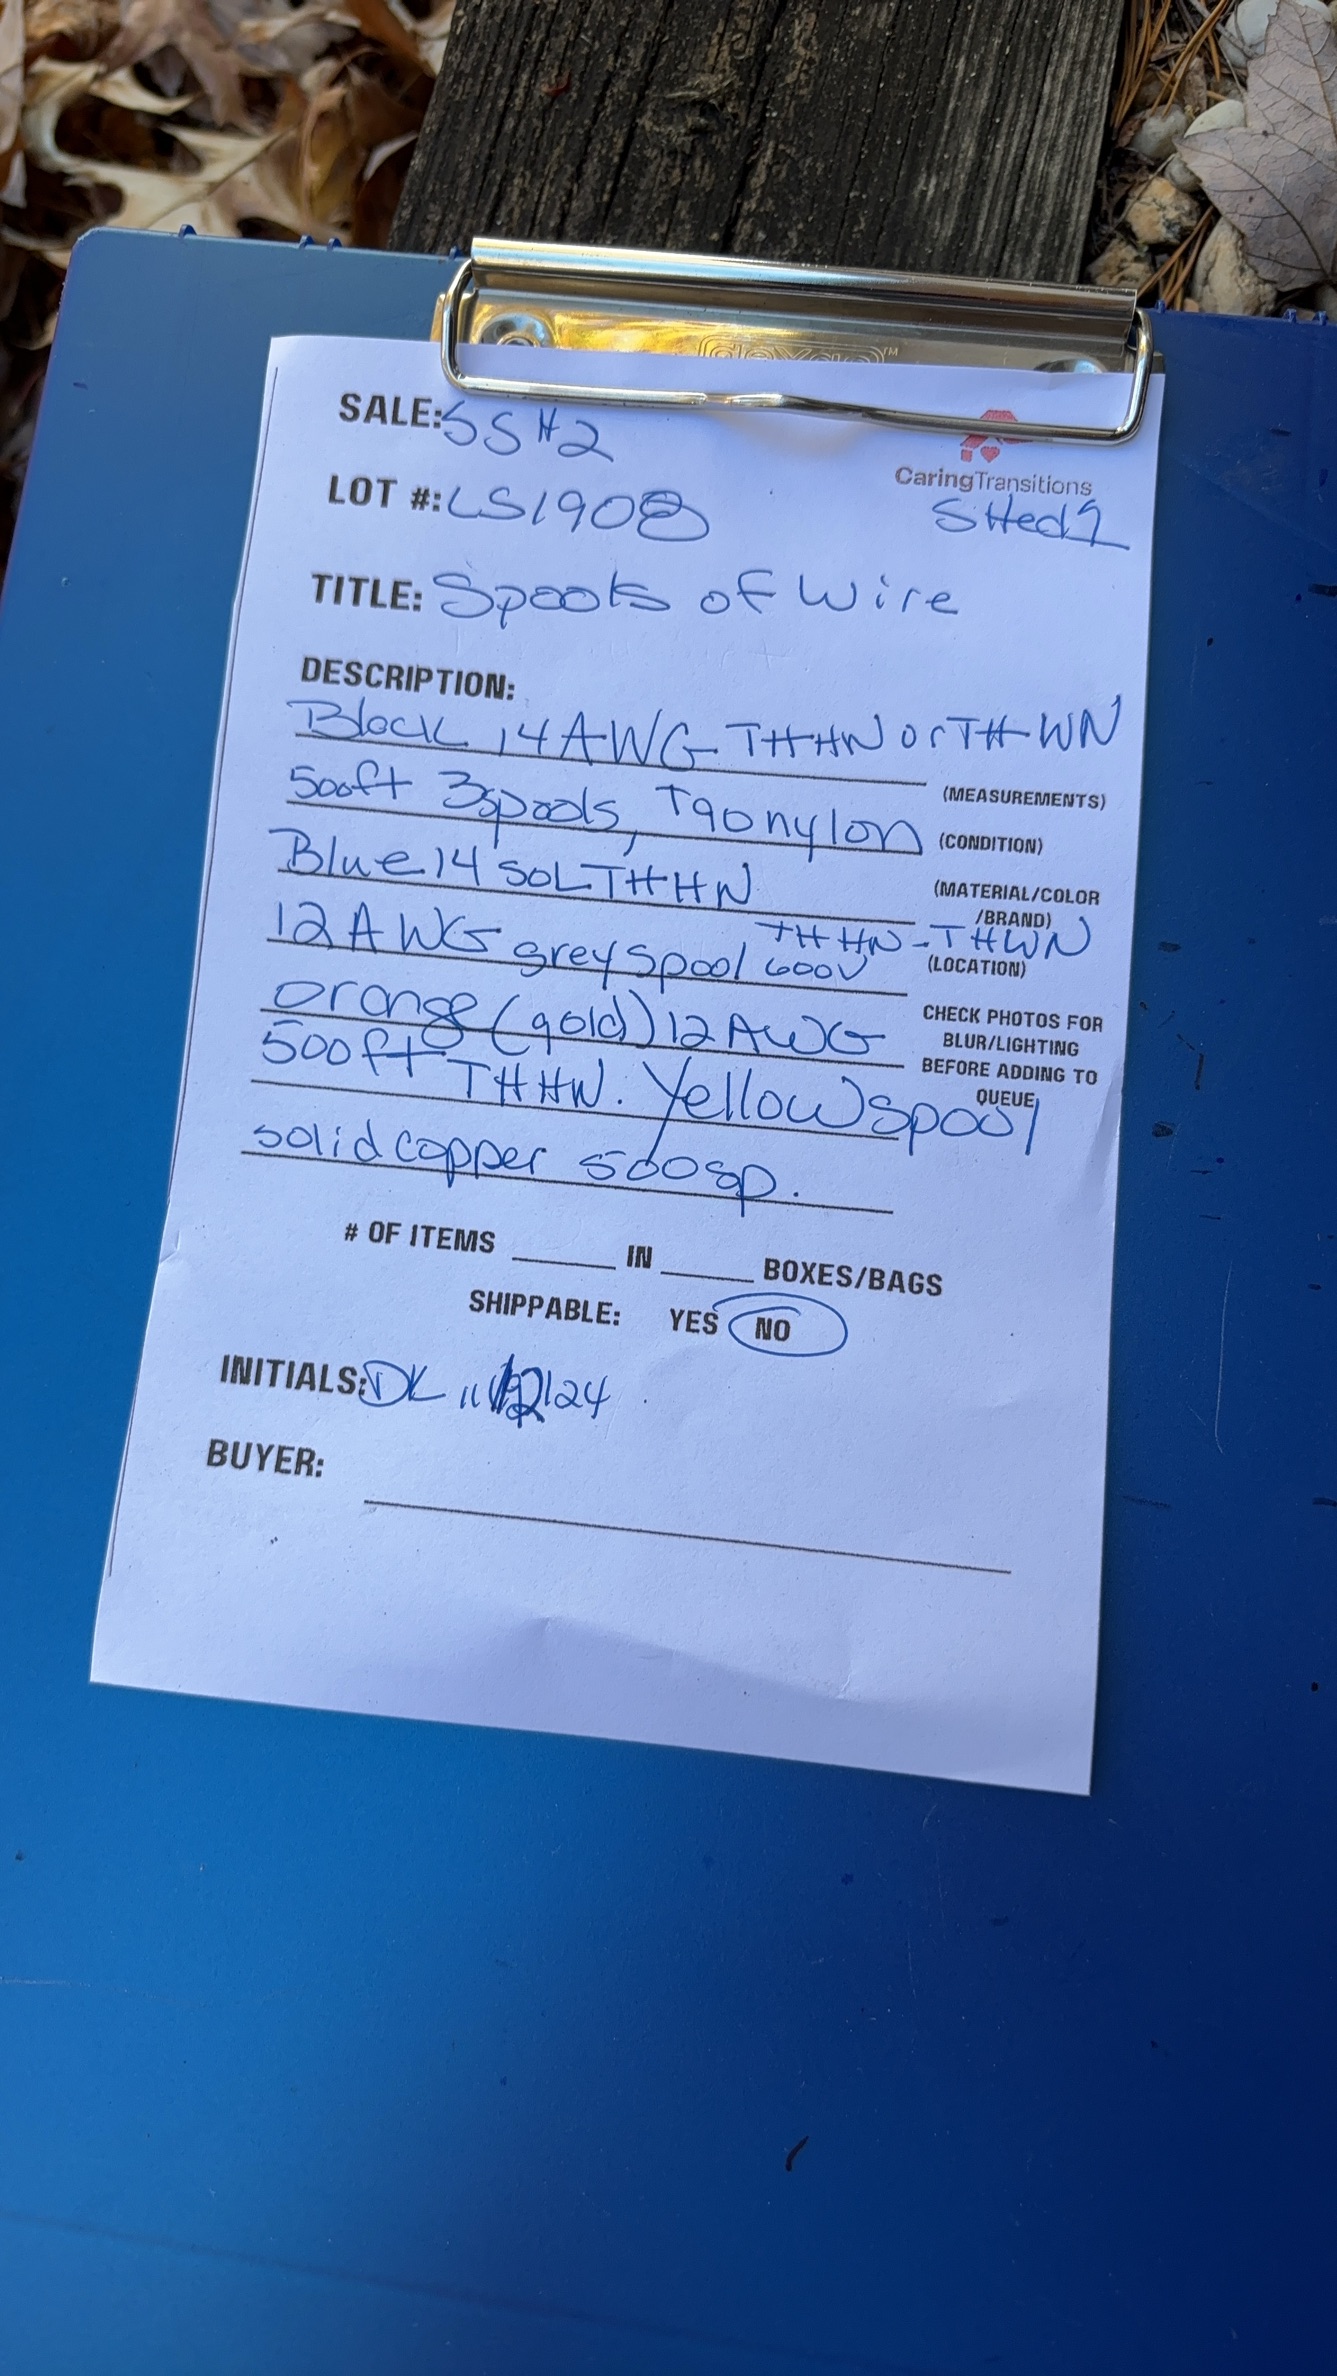 SALE: SSH2
CaringTransitions
LOT #: LS1908
SHed
TITLE: Spools of Wire
DESCRIPTION:
Black 14 AWG THHN or THWN
(MEASUREMENTS)
500ft 3spools, T90 nylon
(CONDITION)
Blue 14 SOL THHN
(MATERIAL/COLOR
/BRAND)
12 AWG grey spool 600V THHN-THWN
(LOCATION)
orange (gold) 12 AWG
CHECK PHOTOS FOR
BLUR/LIGHTING
BEFORE ADDING TO
QUEUE
500ft THHN. Yellow spool
solid copper 500sp.
# OF ITEMS ______ IN ______ BOXES/BAGS
SHIPPABLE: YES NO
INITIALS: DK 11/ /24
BUYER: